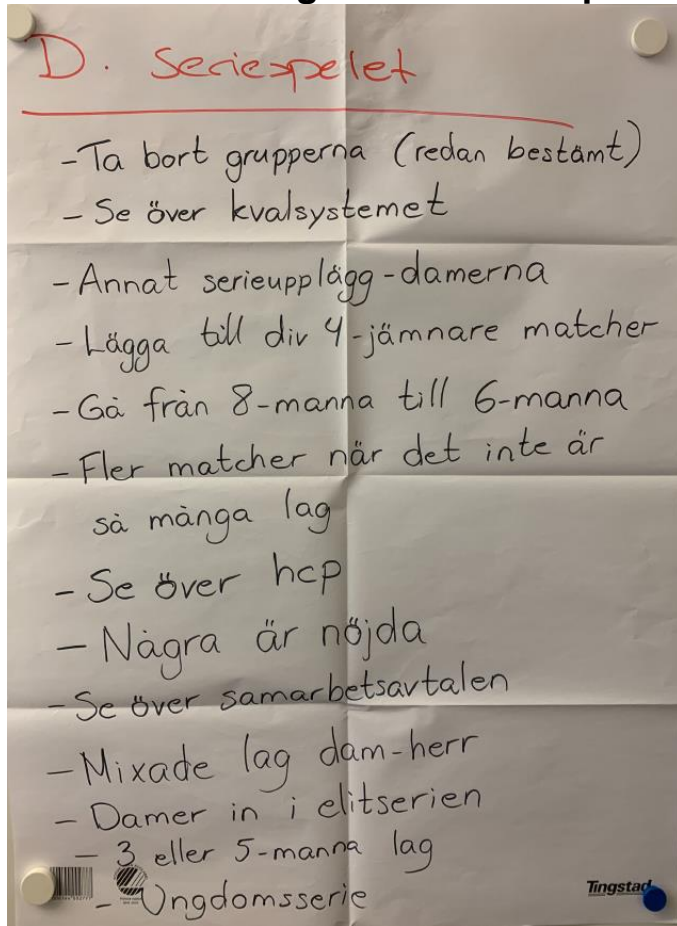 D. Seriespelet
- Ta bort grupperna (redan bestämt)
- Se över kvalsystemet
- Annat serieupplägg - damerna
- Lägga till div 4 - jämnare matcher
- Gå från 8-manna till 6-manna
- Fler matcher när det inte är
så många lag
- Se över hcp
- Några är nöjda
- Se över samarbetsavtalen
- Mixade lag dam-herr
- Damer in i elitserien
- 3 eller 5-manna lag
- Ungdomsserie
Tingstad